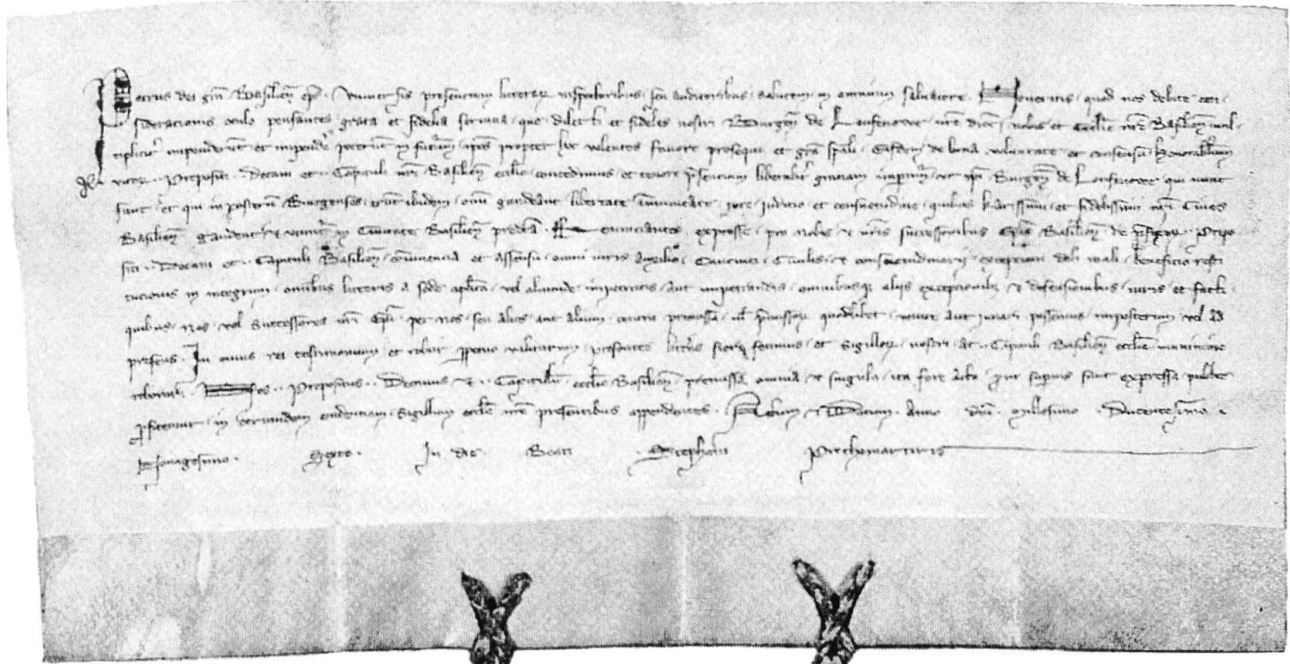 Petrus dei gra Basilien eps . Universis presencium litterar inspectoribus seu auditoribus salutem in omnium salvatore . Noveritis quod nos debite con
sideracionis oculo pensantes grata et fidelia servicia que dilecti et fideles nostri Burgen de Loufenowe nre dioc nobis et Ecclie nre Basilien mul
tiplicit inpenderunt et inpende poterunt in futurum ipos propter hec volentes favore prosequi et gra spali Eisdem de bona voluntate et consensu honorabilium
viror . Prepositi . Decani et . Capituli nre Basilien ecclie concedimus et tenore psencium liberalit graciam ut ipi Burgen de Loufenowe qui nunc
sunt et qui in posterum Burgenses erunt ibidem omi gaudeant libertate inmunitate iure iudicio et consuetudine quibus karissimi et fidelissimi nri Cives
Basilien gaudent et utunt in Civitate Basilien predca . Renunciantes expresse pro nobis et nris successoribus Epis Basilien de Prepo
siti . . Decani et . . Capituli Basilien conivencia et assensu omni iuris auxilio Canonici Civilis et consuetudinarii exceptioni doli mali beneficio resti
tucionis in integrum omnibus litteris a sede aplica vel aliunde inpetratis aut inpetrandis omnibusq aliis exceptionib et defensionibus iuris et facti
quibus nos vel Successores nri Epi per nos seu alios aut alium contra premissa vel premissor quodlibet venire aut iuvari possemus inposterum vel ad
presens . In cuius rei testimonium et robur ppetuo valiturum presentes litteras fieri fecimus et Sigillor nostri ac . . Capituli Basilien ecclie munimine
roborari . Nos . . Prepositus . . Decanus et . . Capitulum ecclie Basilien premissa omnia et singula ita fore acta put superius sunt expressa publice
pfitemur in eorundem evidenciam Sigillum ecclie nre presentibus appendentes . Actum et Datum Anno dni Millesimo Ducentesimo
Nonagesimo Sexto . In die Beati Stephani Prothomartiris